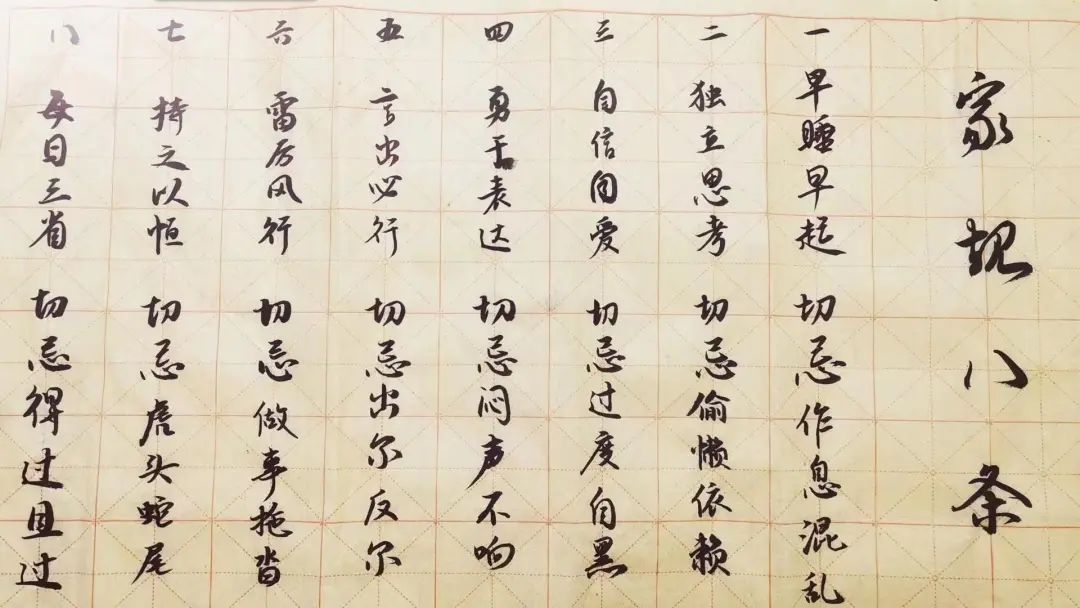 家规八条
一 早睡早起 切忌作息混乱
二 独立思考 切忌偷懒依赖
三 自信自爱 切忌过度自黑
四 勇于表达 切忌闷声不响
五 言出必行 切忌出尔反尔
六 雷厉风行 切忌做事拖沓
七 持之以恒 切忌虎头蛇尾
八 每日三省 切忌得过且过